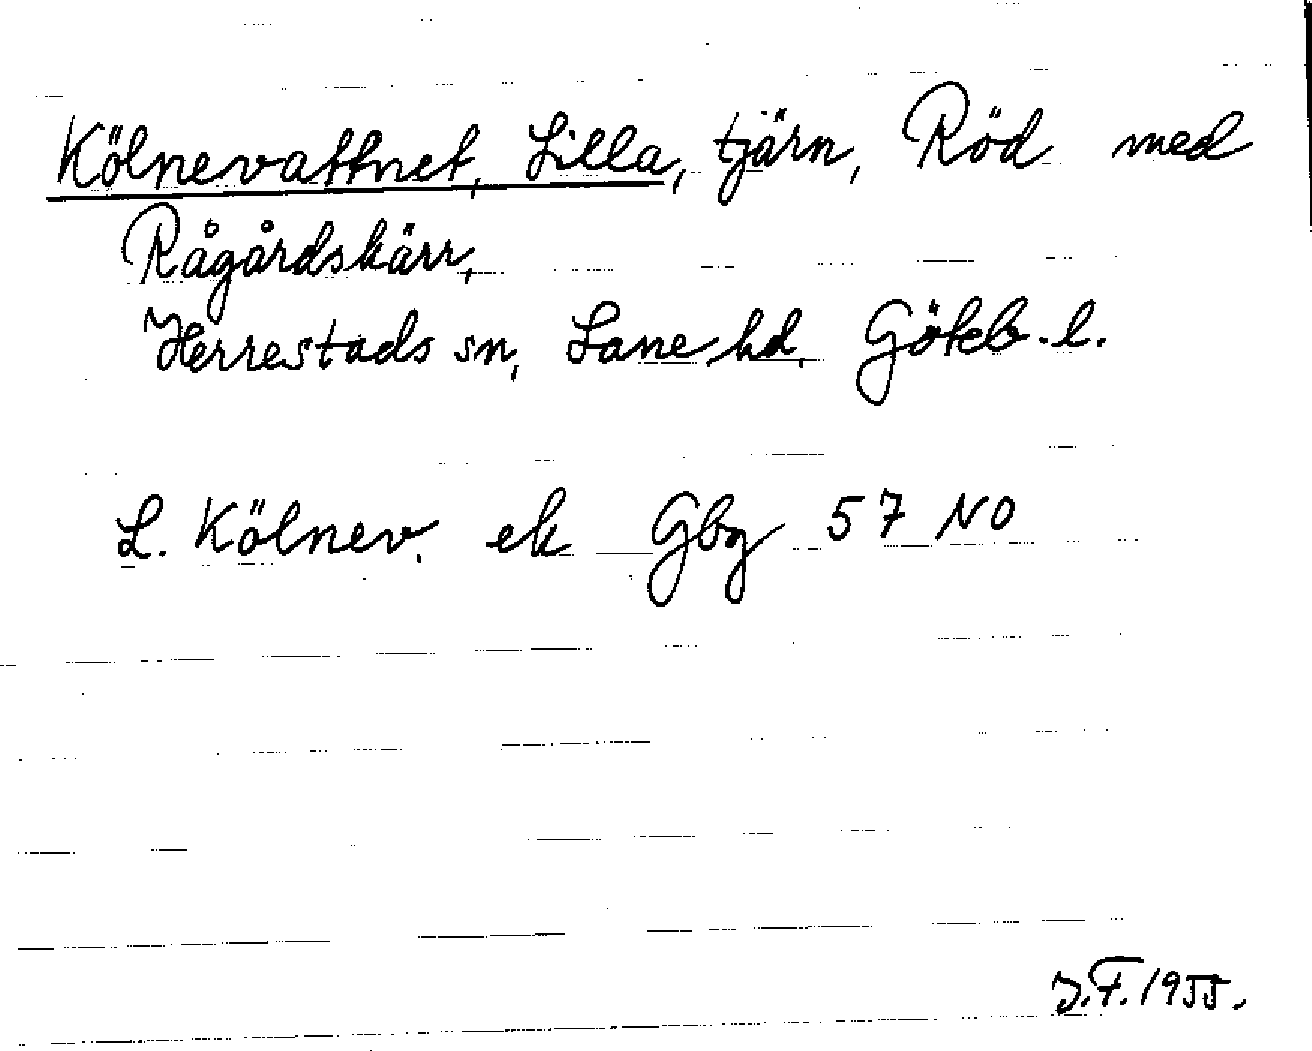 Kölnevattnet, Lilla, tjärn, Röd med
Rågårdskärr,
Herrestads sn, Lane hd, Göteb. l.
L. Kölnev. ek Gbg 57 NO
J.F. 1955.